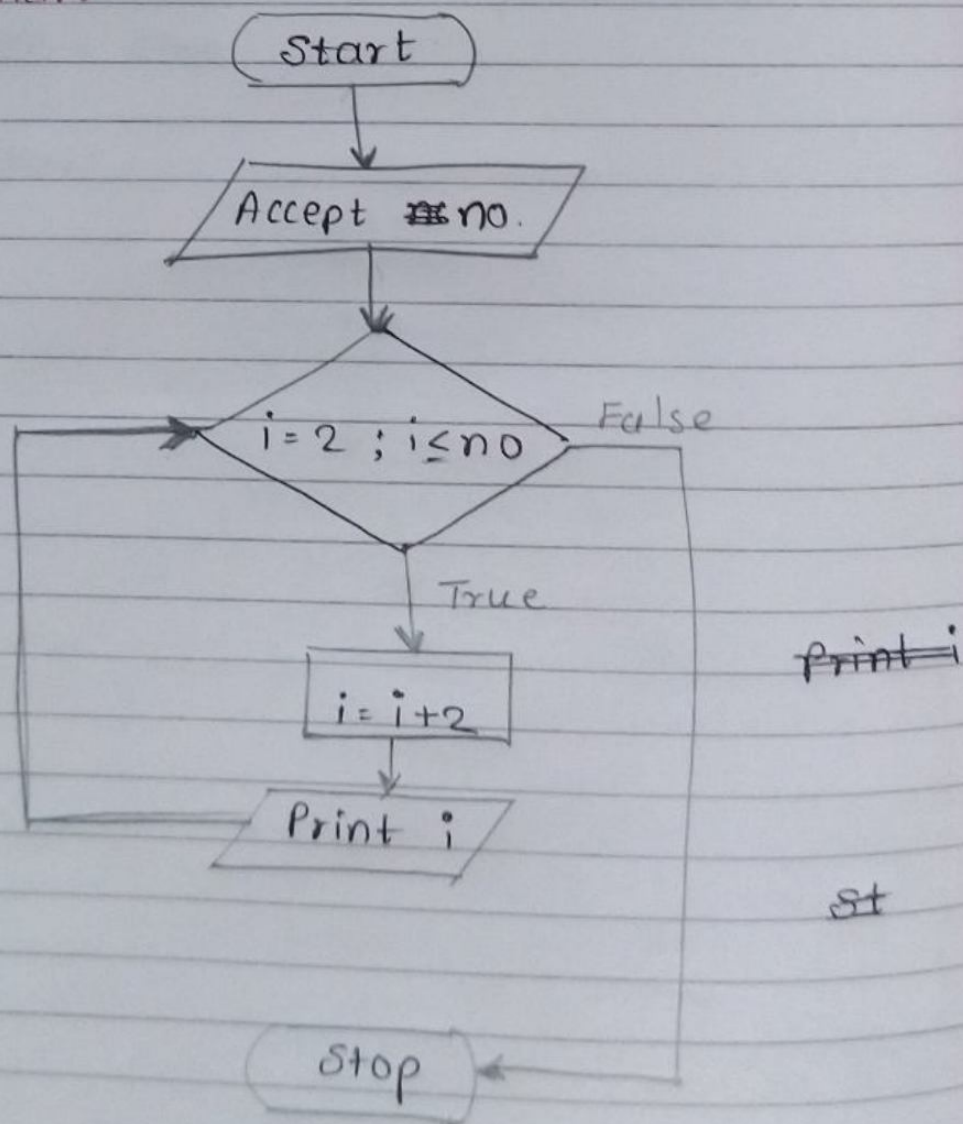 Start
Accept no.
i = 2 ; i ≤ no
False
True
print i
i = i + 2
Print i
st
Stop